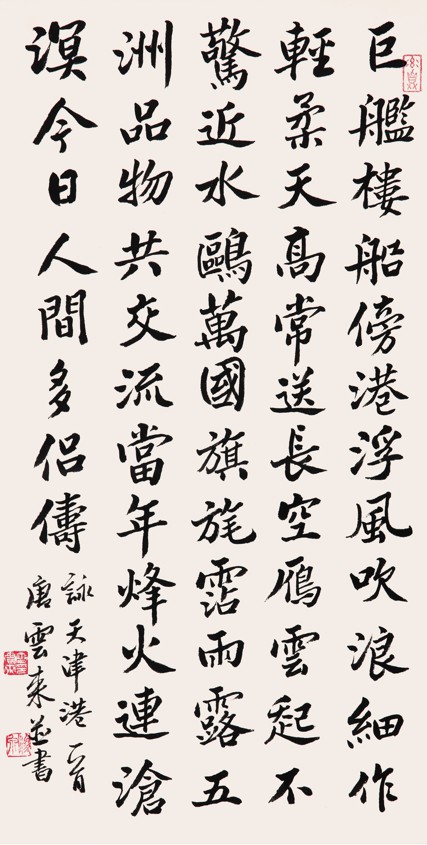 巨艦樓船傍港浮風吹浪細作
輕柔天高常送長空雁雲起不
驚近水鷗萬國旗旄霑雨露五
洲品物共交流當年烽火連滄
溟今日人間多侶儔
詠天津港一首
唐雲來並書